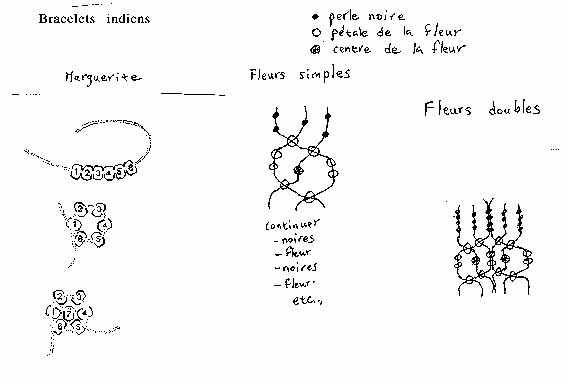 Bracelets indiens
perle noire
pétale de la fleur
centre de la fleur
Marguerite
Fleurs simples
Fleurs doubles
1 2 3 4 5 6
2 3
1 4
6 5
2 3
1 7 4
6 5
continuer
- noires
- fleur
- noires
- fleur
etc.,